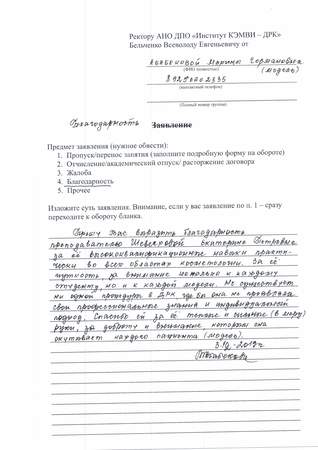 Ректору АНО ДПО «Институт КЭМВИ – ДРК»
Бельченко Всеволоду Евгеньевичу от
Марины Германовны
(ФИО полностью) (модель)
(контактный телефон)
(Полный номер группы)
Благодарность Заявление
Предмет заявления (нужное обвести):
1. Пропуск/перенос занятия (заполните подробную форму на обороте)
2. Отчисление/академический отпуск/ расторжение договора
3. Жалоба
4. Благодарность
5. Прочее
Изложите суть заявления. Внимание, если у вас заявление по п. 1 – сразу
переходите к обороту бланка.
Прошу Вас выразить благодарность
преподавателю Екатерине Петровне
за её высококвалификационные навыки практи-
чески во всех областях косметологии. За её
чуткость, за внимание не только к каждому
студенту, но и к каждой модели. Не существует
ни одной процедуры в ДРК, где бы она не проявляла
свои профессиональные знания и индивидуальный
подход. Спасибо ей за её теплые и сильные (в меру)
руки, за доброту и внимание, которым она
окутывает каждого пациента (модель).